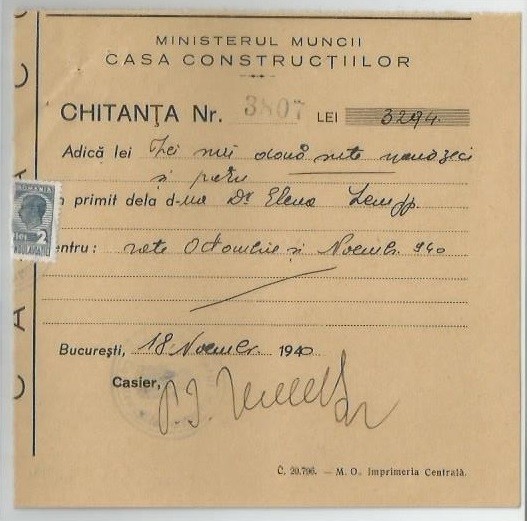 MINISTERUL MUNCII
CASA CONSTRUCȚIILOR
CHITANȚA Nr. 3807 LEI 3294
Adică lei Trei mii două sute nouăzeci
și patru
primit dela d-na Dr Elena
entru: rate Octombrie și Noembr. 940
ROMANIA
LEI 2
București, 18 Noembr. 1940
Casier,
Č. 20.796. — M. O., Imprimeria Centrală.